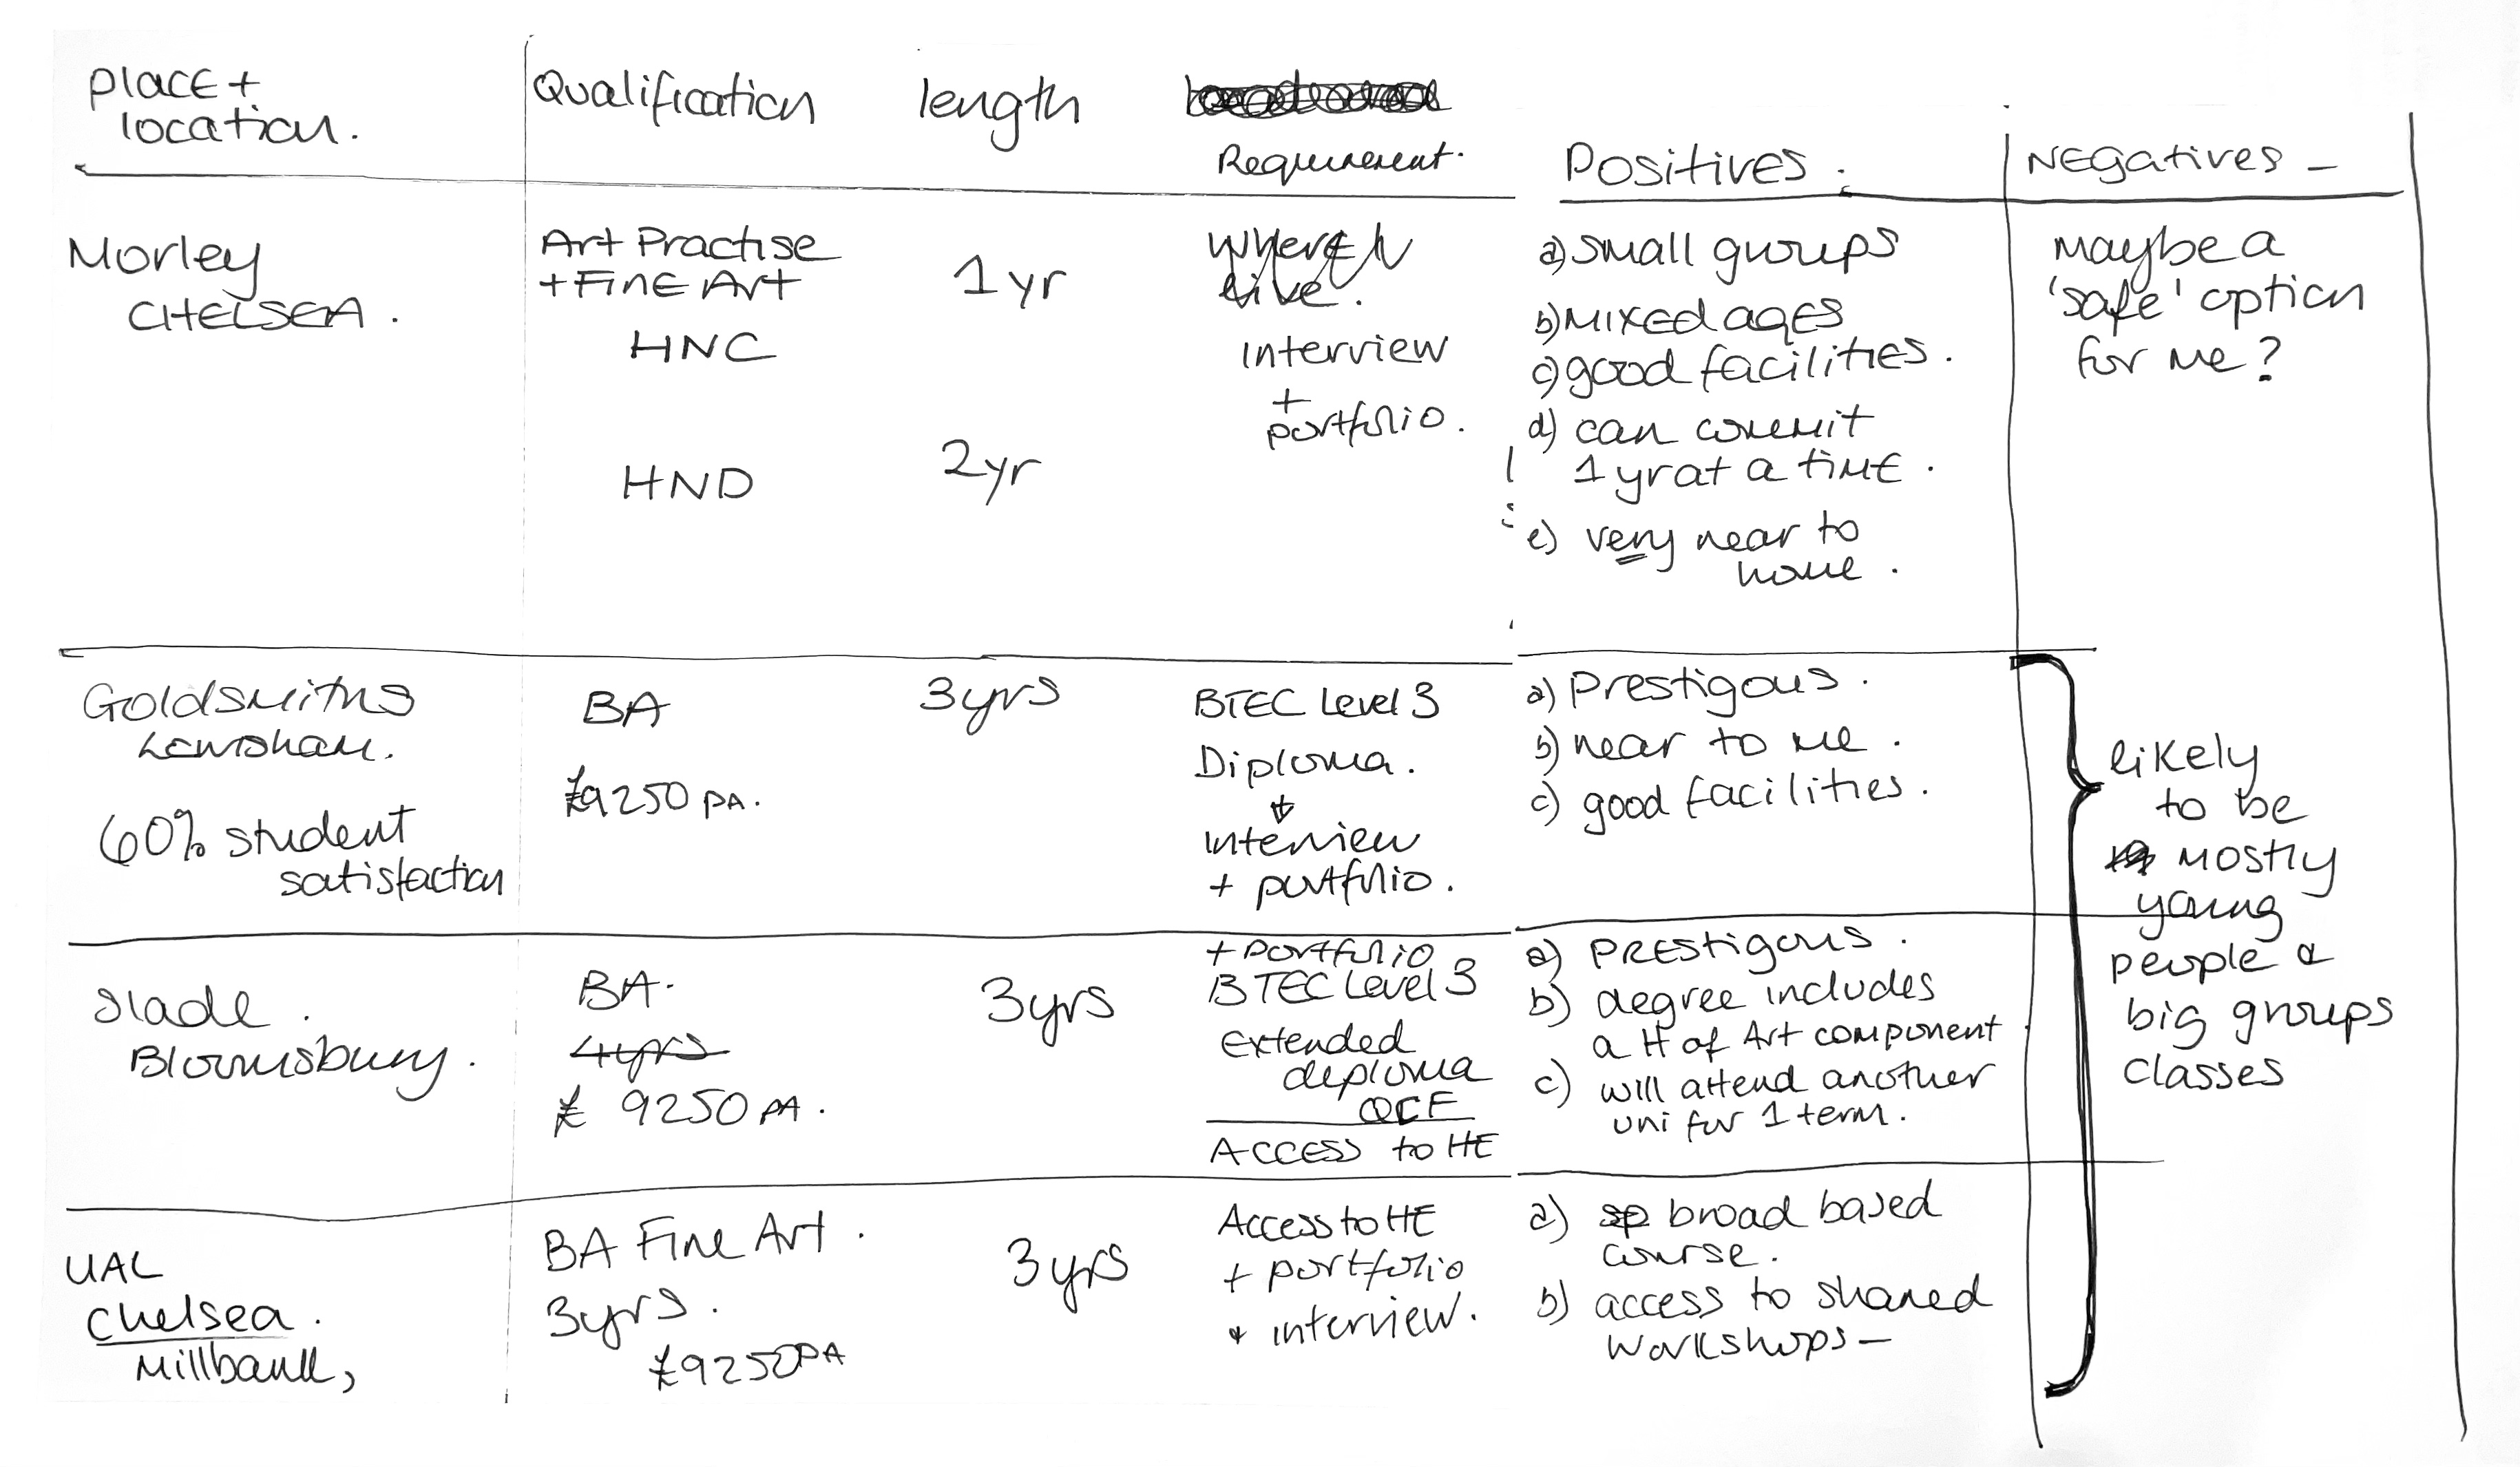 Place + location.
Qualification
length
Requirement.
Positives.
Negatives -
Morley
CHELSEA.
Art Practise
+ Fine Art
HNC
HND
1 yr
2yr
Where I
live.
Interview
+
portfolio.
a) small groups
b) Mixed ages
c) good facilities.
d) can commit
1 yr at a time.
e) very near to
home.
Maybe a
'safe' option
for me?
Goldsmiths
Lewisham.
60% student
satisfaction
BA
£9250 pa.
3yrs
BTEC Level 3
Diploma.
+
Interview
+ portfolio.
a) Prestigous.
b) near to me.
c) good facilities.
likely
to be
mostly
young
people &
big groups
classes
Slade.
Bloomsbury.
BA.
4yrs
£ 9250 PA.
3yrs
+ portfolio
BTEC Level 3
Extended
diploma
QCF
Access to HE
a) Prestigous.
b) degree includes
a H of Art component
c) will attend another
uni for 1 term.
UAL
Chelsea.
Millbank,
BA Fine Art.
3yrs.
£9250PA
3yrs
Access to HE
+ portfolio
+ interview.
a) broad based
course.
b) access to shared
workshops -